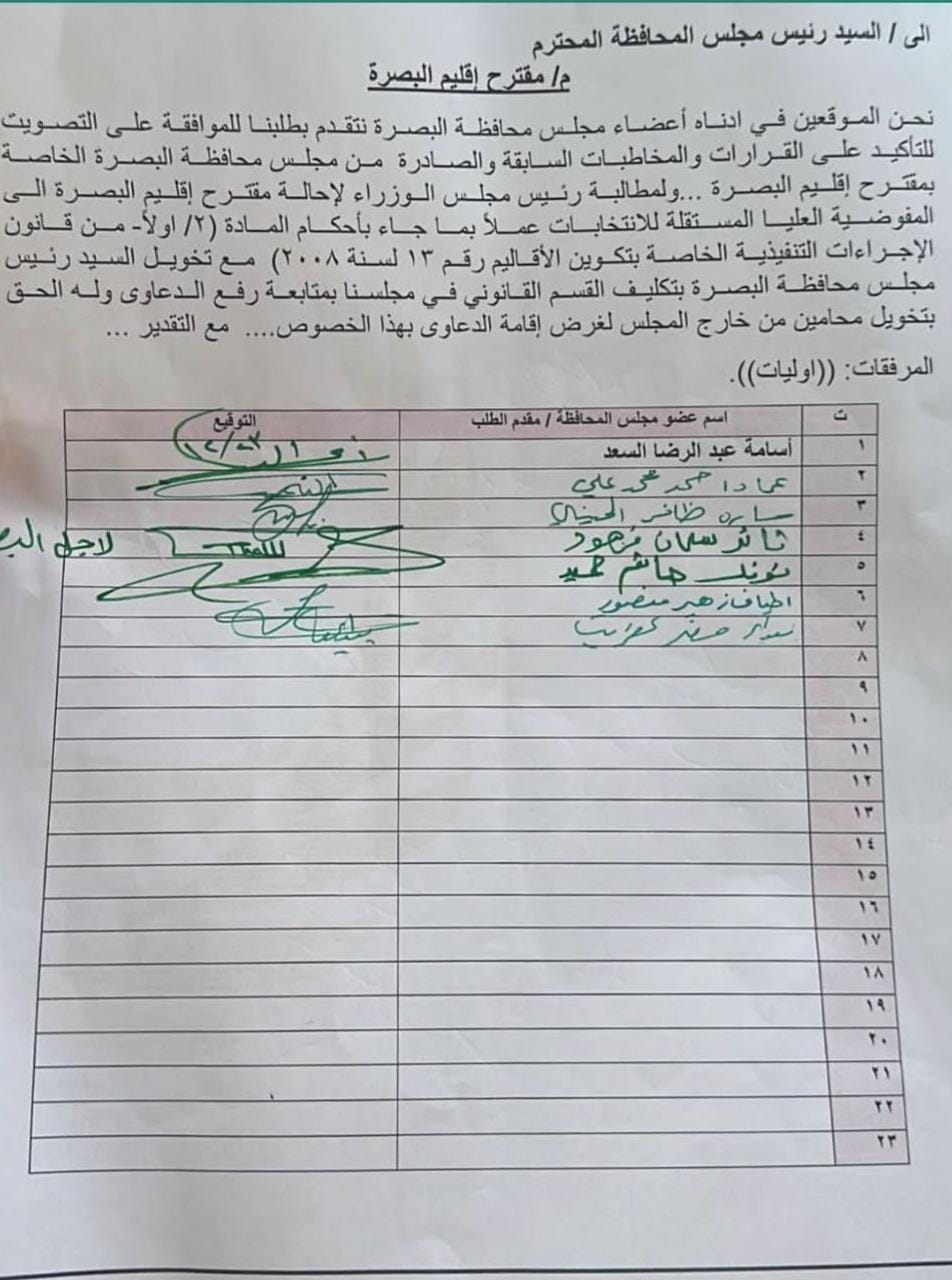 الى / السيد رئيس مجلس المحافظة المحترم
م/ مقترح إقليم البصرة
نحن الموقعين في ادناه أعضاء مجلس محافظة البصرة نتقدم بطلبنا للموافقة على التصويت
للتأكيد على القرارات والمخاطبات السابقة والصادرة من مجلس محافظة البصرة الخاصة
بمقترح إقليم البصرة ...ولمطالبة رئيس مجلس الوزراء لإحالة مقترح إقليم البصرة الى
المفوضية العليا المستقلة للانتخابات عملاً بما جاء بأحكام المادة (٢/ اولاً- من قانون
الإجراءات التنفيذية الخاصة بتكوين الأقاليم رقم ١٣ لسنة ٢٠٠٨) مع تخويل السيد رئيس
مجلس محافظة البصرة بتكليف القسم القانوني في مجلسنا بمتابعة رفع الدعاوى وله الحق
بتخويل محامين من خارج المجلس لغرض إقامة الدعاوى بهذا الخصوص.... مع التقدير ...
المرفقات: ((اوليات)).
ت اسم عضو مجلس المحافظة / مقدم الطلب التوقيع
١ أسامة عبد الرضا السعد
٢ عماد احمد محمد علي
٣ ساره ظافر
٤ ثائر سلمان لاجل
٥ هاشم حميد
٦ اطياف زهير منصور
٧
٨
٩
١٠
١١
١٢
١٣
١٤
١٥
١٦
١٧
١٨
١٩
٢٠
٢١
٢٢
٢٣